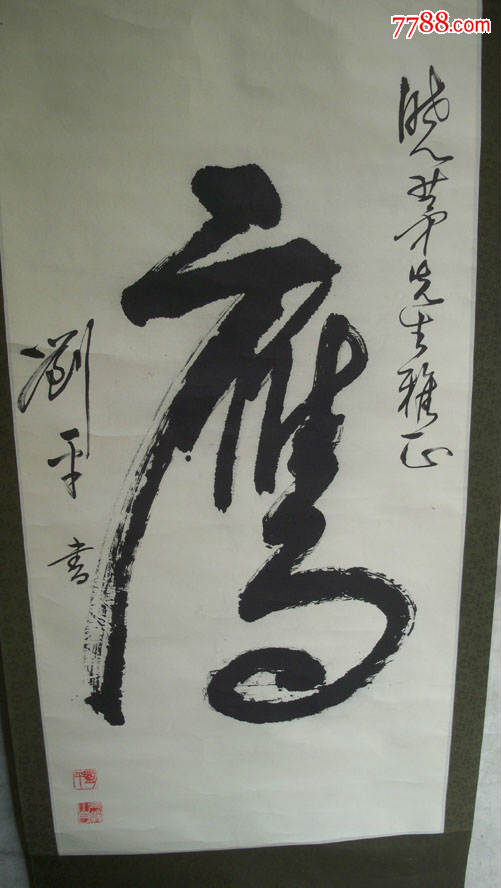 7788.com
先生雅正
鹰
劉平书